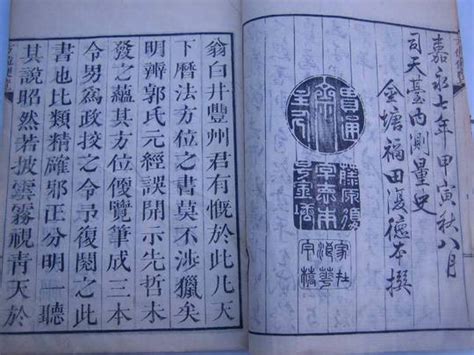 嘉永七年甲寅秋八月
司天臺内測量史
金塘福田復德本撰
藤原復
号金塘
翁白井豐州君有慨於此凡天
下曆法方位之書莫不涉獵矣
明辨郭氏元經誤開示先哲未
發之蘊其方位便覽筆成三本
令男為政挍之令予復閱之此
書也比類精確邪正分明一聽
其說昭然若披雲霧視青天於